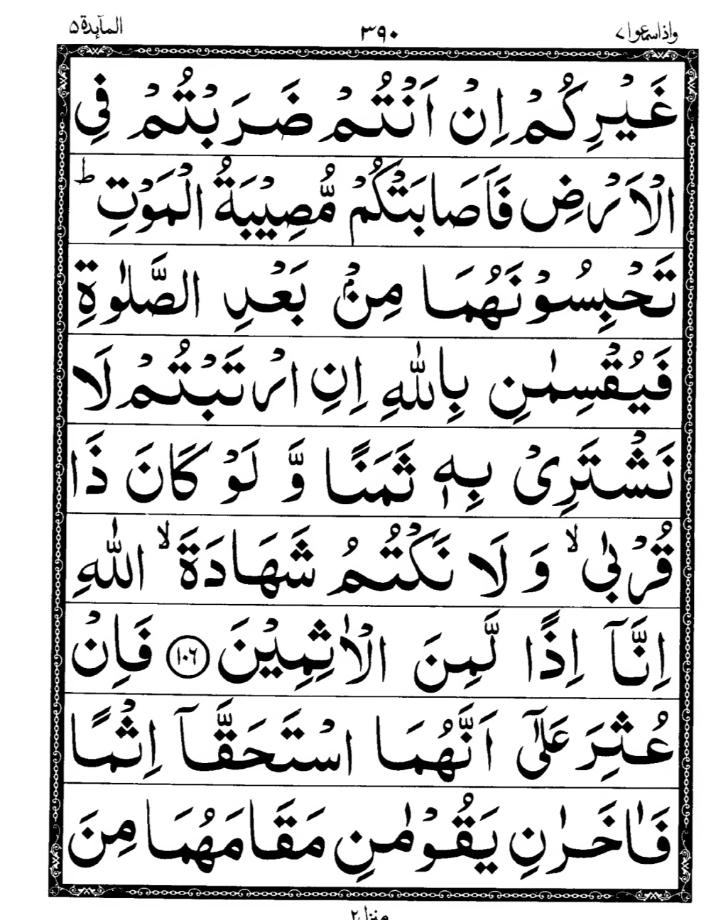 واذاسمعوا ٧ ٣٩٠ المآبدة ٥
غَيْرِكُمْ اِنْ اَنْتُمْ ضَرَبْتُمْ فِي
الْاَرْضِ فَاَصَابَتْكُمْ مُّصِيْبَةُ الْمَوْتِ ؕ
تَحْبِسُوْنَهُمَا مِنْۢ بَعْدِ الصَّلٰوةِ
فَيُقْسِمٰنِ بِاللّٰهِ اِنِ ارْتَبْتُمْ لَا
نَشْتَرِيْ بِهٖ ثَمَنًا وَّ لَوْ كَانَ ذَا
قُرْبٰى ۙ وَ لَا نَكْتُمُ شَهَادَةَ ۙ اللّٰهِ
اِنَّاۤ اِذًا لَّمِنَ الْاٰثِمِيْنَ ﴿۱۰۶﴾ فَاِنْ
عُثِرَ عَلٰۤى اَنَّهُمَا اسْتَحَقَّاۤ اِثْمًا
فَاٰخَرٰنِ يَقُوْمٰنِ مَقَامَهُمَا مِنَ
منزل ٢